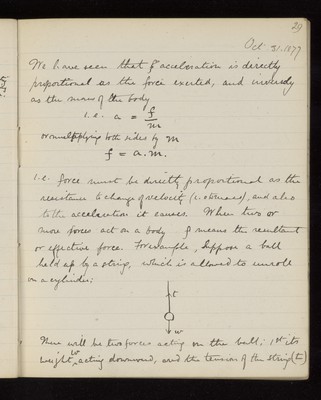 29
Oct. 31. 1877
We have seen that yᵉ acceleration is directly
proportional as the force exerted, and inversely
as the mass of the body
i.e. a = f/m
or multiplying both sides by m
f = a.m.
i.e. force must be directly proportional as the
resistance to change of velocity (i.e. mass), and also
to the acceleration it causes. When two or
more forces act on a body f means the resultant
or effective force. For example, Suppose a ball
held up by a string, which is allowed to unroll
on a cylinder:
t
w
There will be two forces acting on the ball: 1st its
weight w acting downward, and the tension of the string (t)